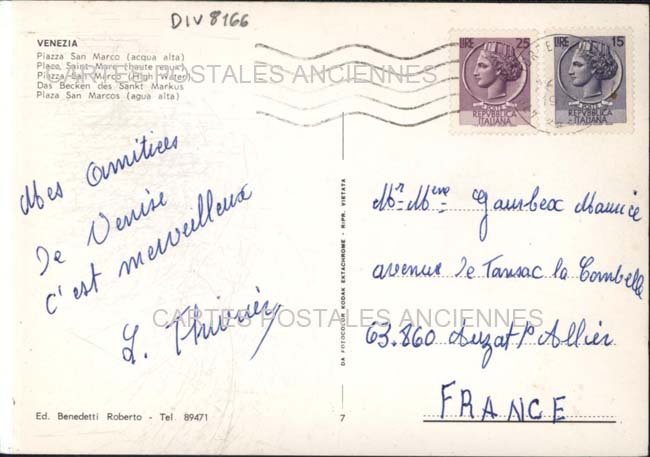 DIV 8166
VENEZIA
Piazza San Marco (acqua alta)
Place Saint Marc (haute eque)
Piazza San Marco (High Water)
Das Becken des Sankt Markus
Plaza San Marcos (agua alta)
CARTES POSTALES ANCIENNES
LIRE 25
POSTE
REPVBBLICA
ITALIANA
LIRE 15
POSTE
REPVBBLICA
ITALIANA
Mes amitiées
De Venise
c'est merveilleux
L. Thivrier
Mr Mme Gaurbex Maurice
avenue de Tansac la Combelle
63.860 Auzat s/ Allier
FRANCE
CARTES POSTALES ANCIENNES
DA FOTOCOLOR KODAK EKTACHROME - RIPR. VIETATA
Ed. Benedetti Roberto - Tel 89471
7